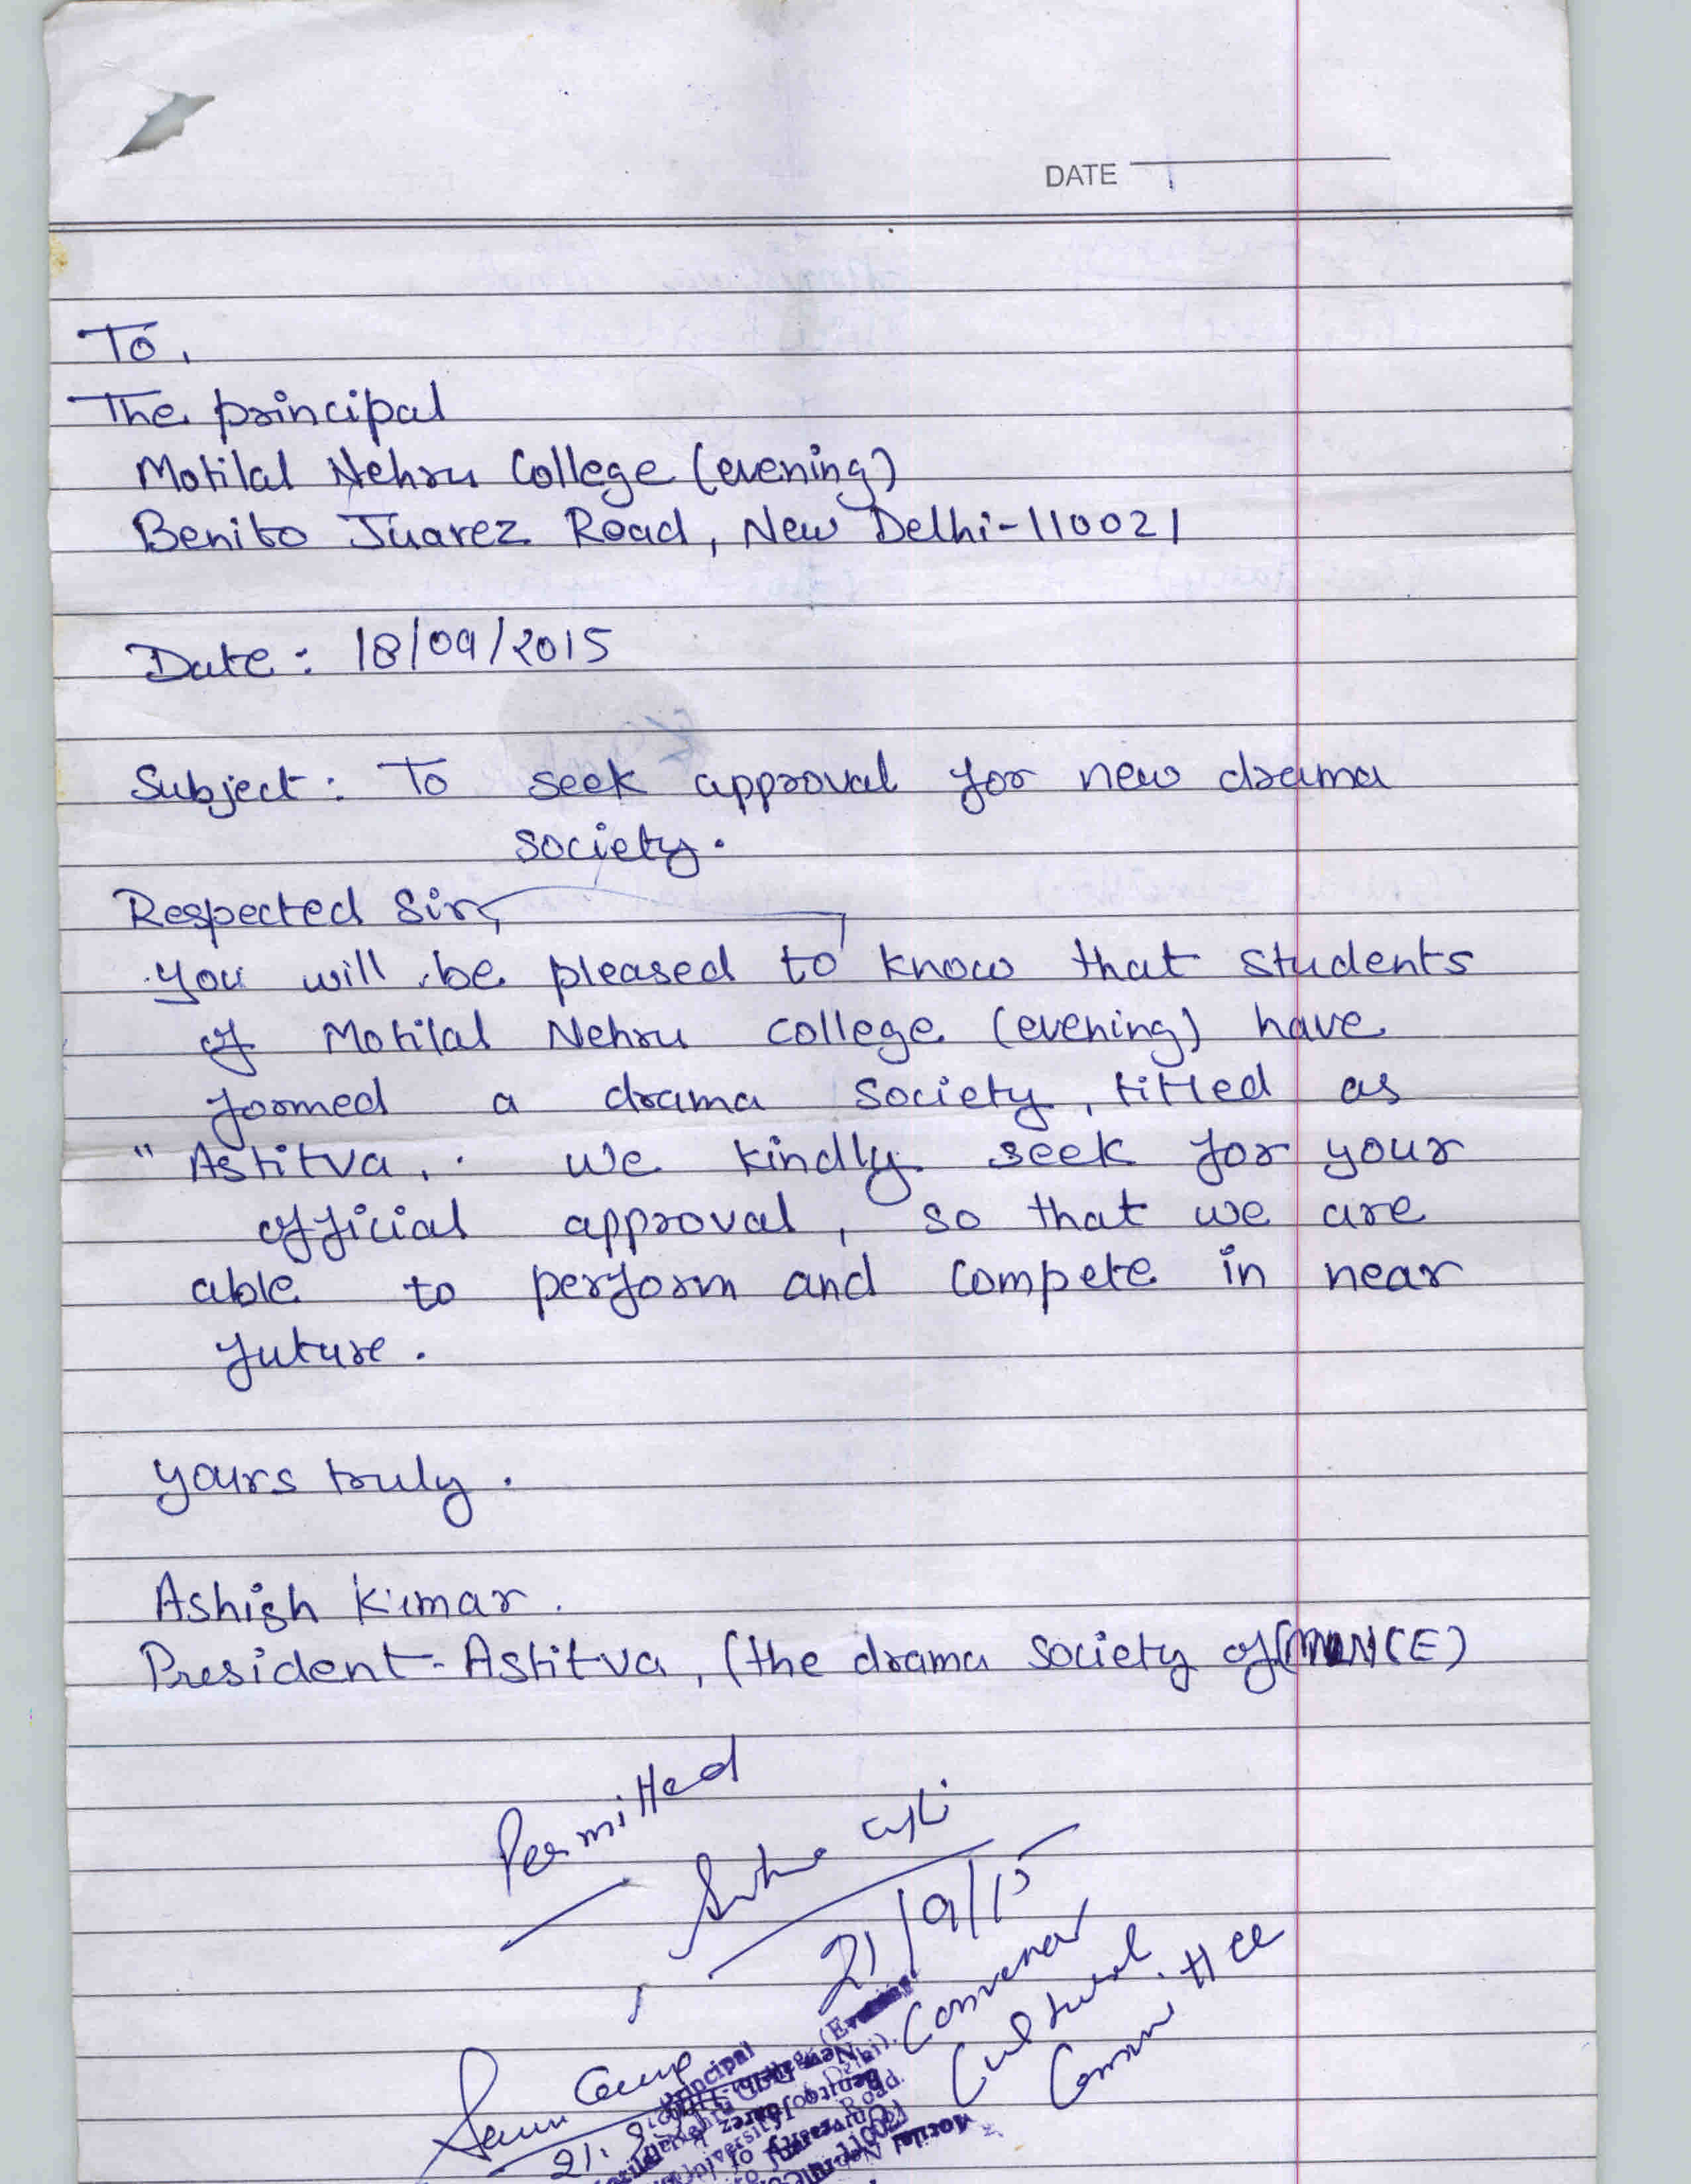 DATE
To,
The principal
Motilal Nehru College (evening)
Benito Juarez Road, New Delhi-110021
Date: 18/09/2015
Subject: To seek approval for new drama
society.
Respected Sir,
you will be pleased to know that students
of Motilal Nehru college (evening) have
formed a drama society, titled as
"Astitva, . we kindly seek for your
official approval, so that we are
able to perform and compete in near
future.
yours truly.
Ashish Kumar.
President-Astitva, (the drama society of (MNCE)
Permitted
21/9/15
Convenor
Cultural
Committee
Principal